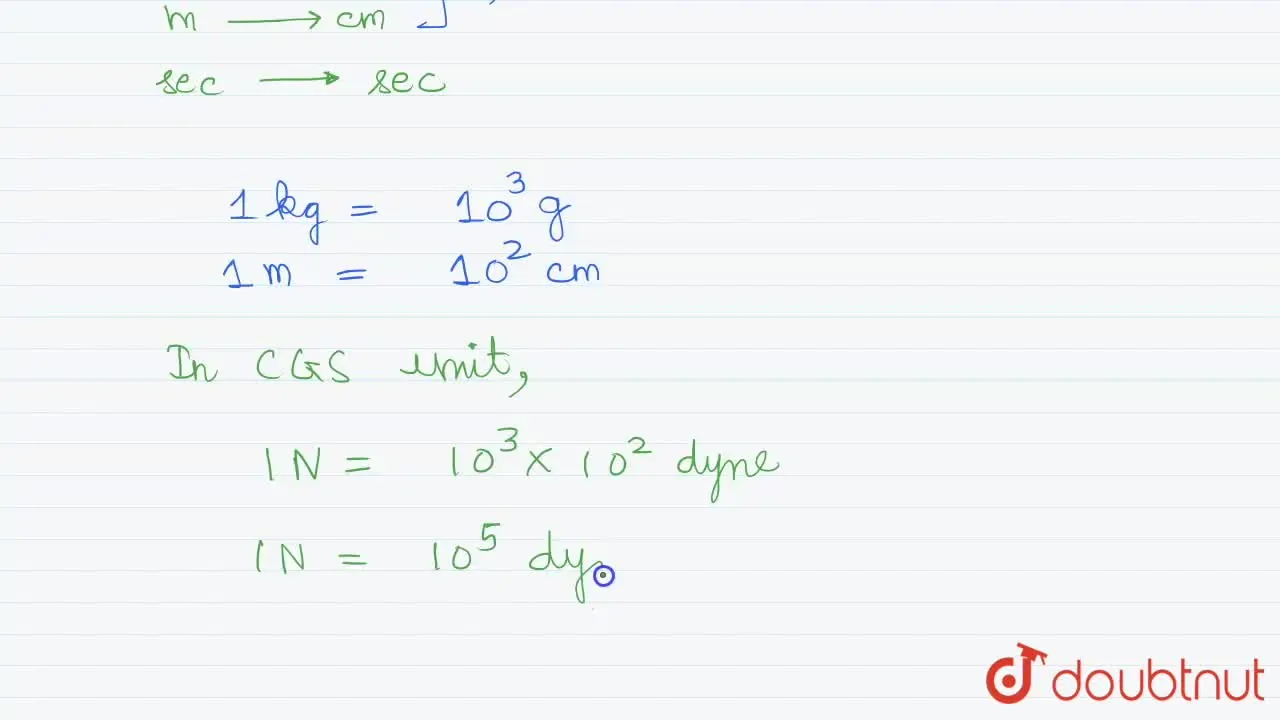 m → cm
sec → sec
1 kg = 10³ g
1 m = 10² cm
In CGS unit,
1 N = 10³ × 10² dyne
1 N = 10⁵ dy
doubtnut